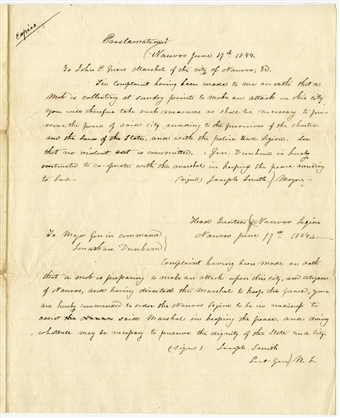 Copies
Proclamation
Nauvoo June 17th 1844.
To John P. Green Marshal of the city of Nauvoo, &c.
Sir Complaint having been made to me on oath that a
Mob is collecting at sundry points to make an attack on this city
You will therefore take such measures as shall be necessary to pre-
serve the peace of said city according to the provisions of the charter
and the laws of the State, and with the police and Legion. See
that no violent act is committed. Gen. Dunham is hereby
instructed to co-operate with the marshal in keeping the peace according
to law.
(signed) Joseph Smith Mayor
Head Quarters Nauvoo Legion
Nauvoo June 17th 1844
To Maj Gen in command
Jonathan Dunham
Complaint having been made on oath
that a mob is preparing to make an attack upon this city, and citizens
of Nauvoo, and having directed the Marshal to keep the peace, you
are hereby commanded to order the Nauvoo Legion to be in readiness to
assist the said Marshal in keeping the peace, and doing
whatever may be necessary to preserve the dignity of the State and City.
(Signed) Joseph Smith
Lieut-Gen N. L.